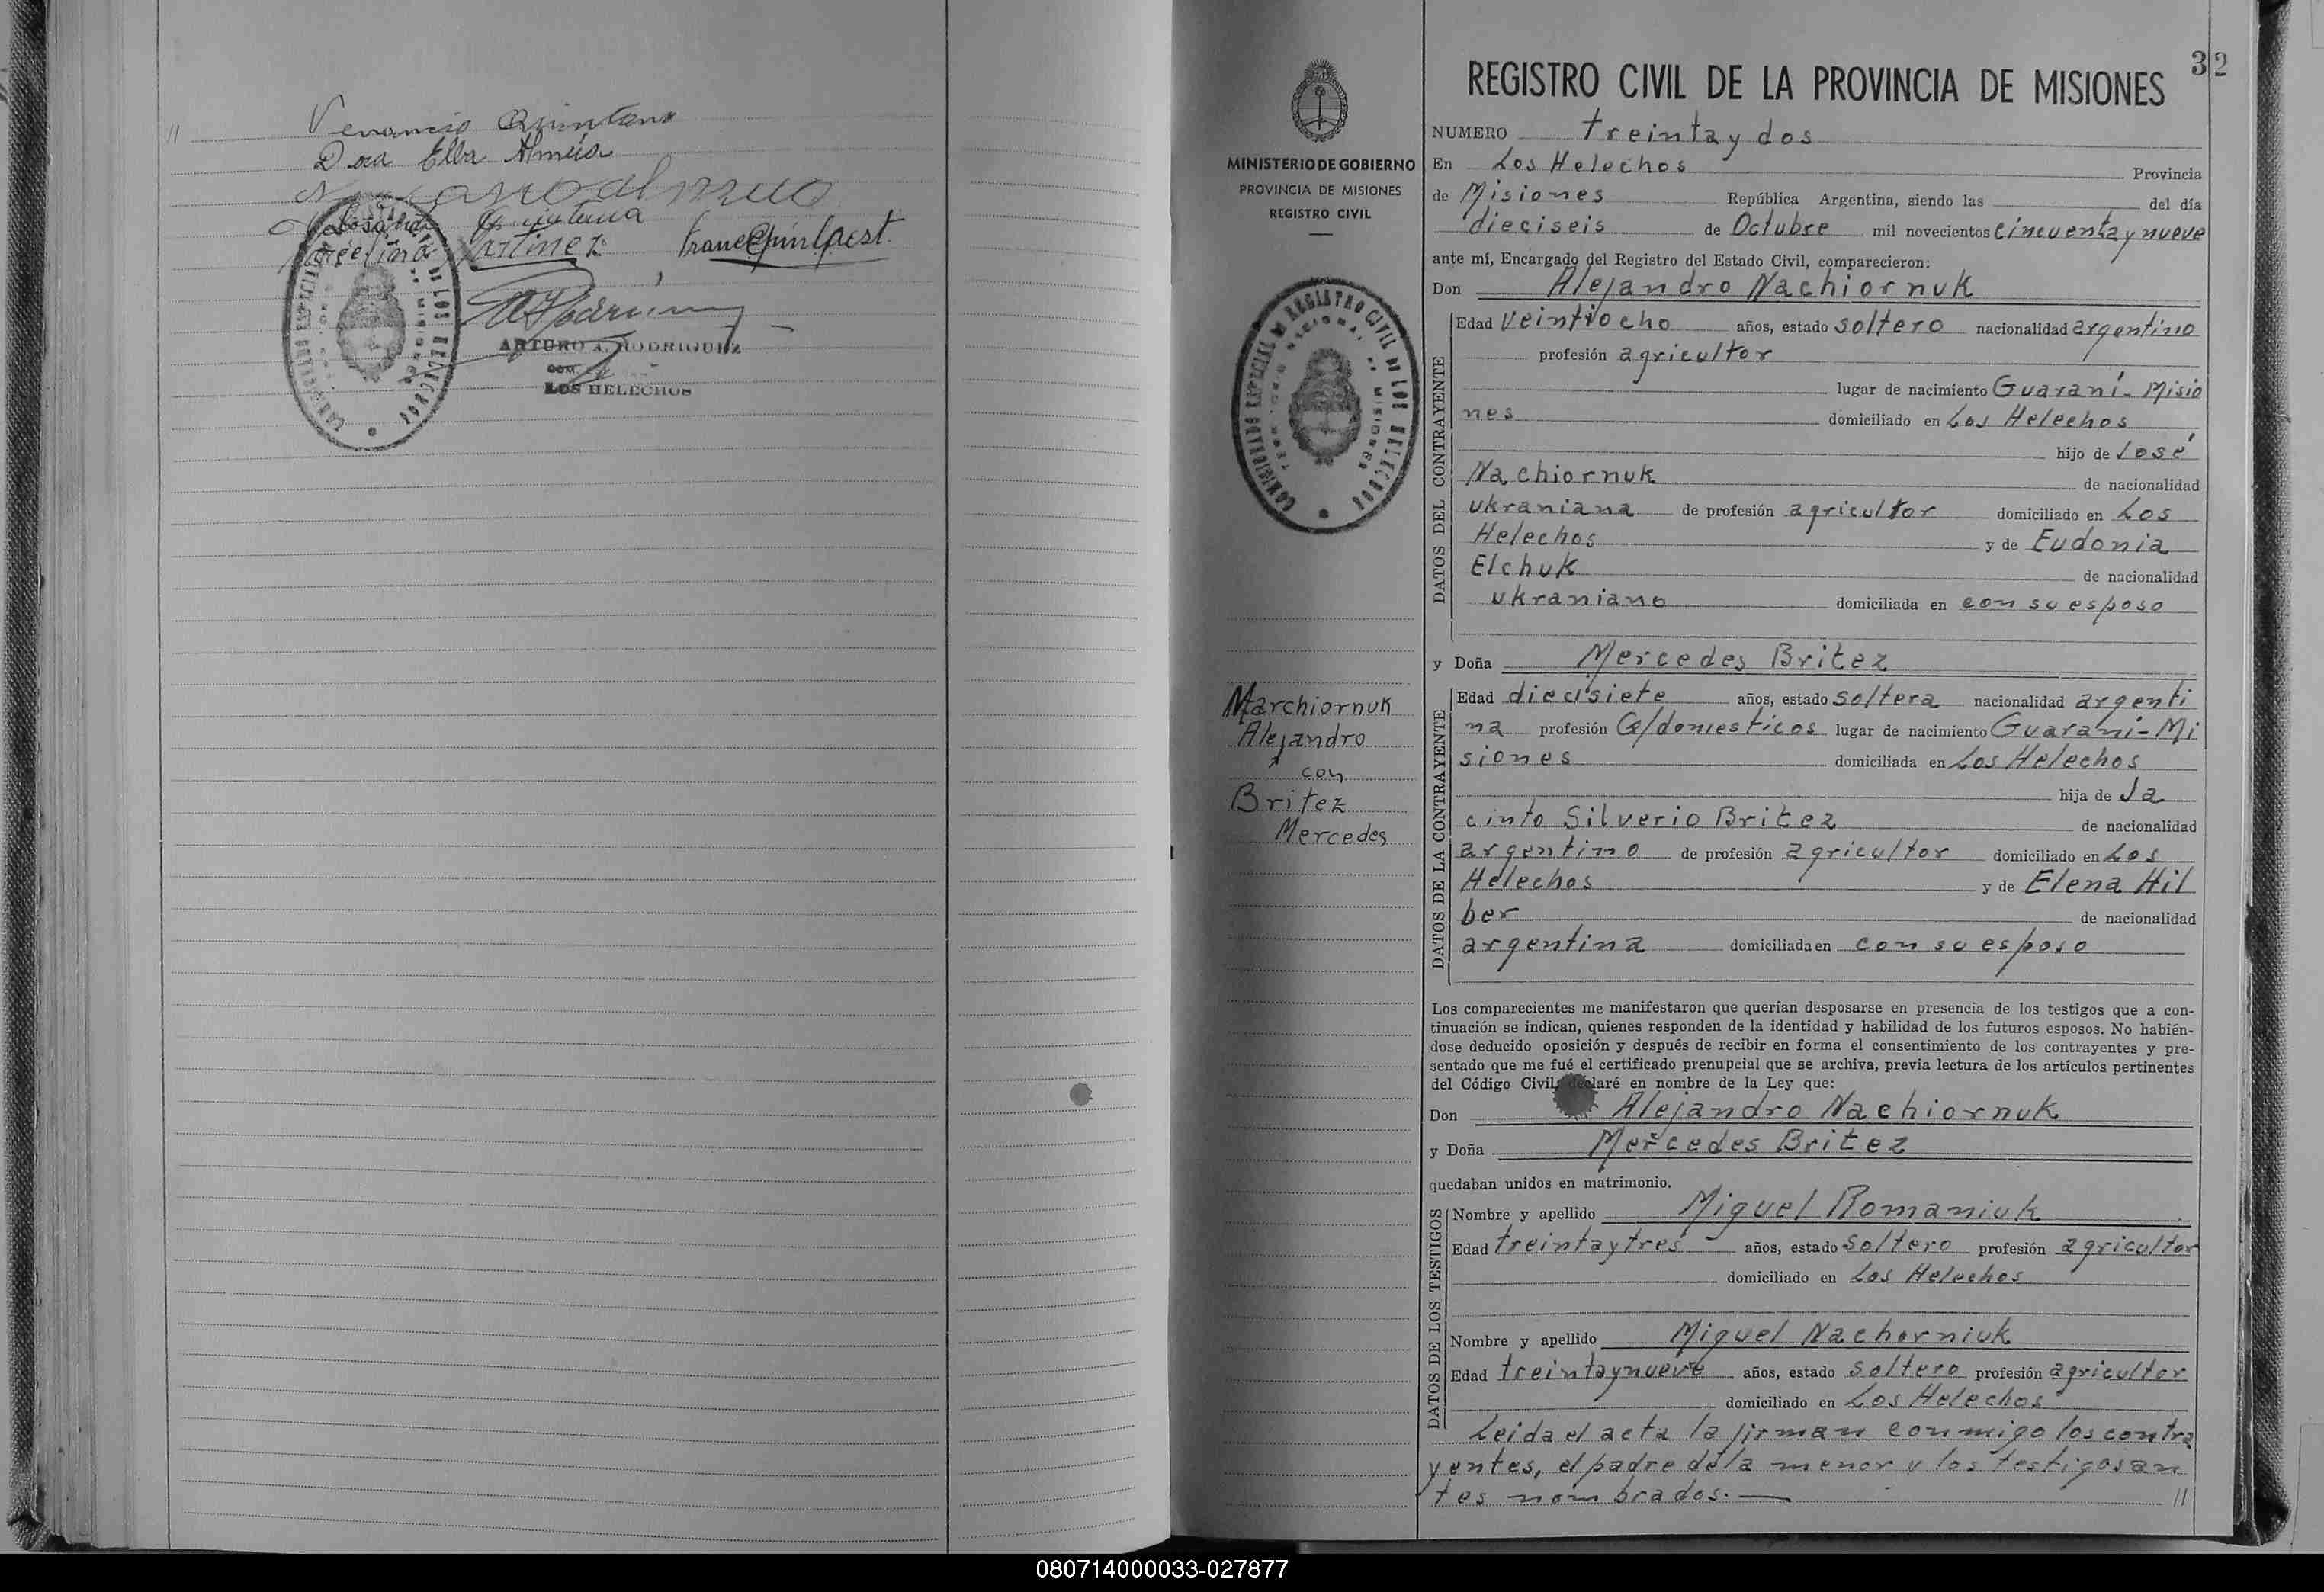 //
Venancio Quintana
Dora Elba Almeia
Quintana
Martinez
ARTURO A. RODRIGUEZ
LOS HELECHOS
32
REGISTRO CIVIL DE LA PROVINCIA DE MISIONES
MINISTERIO DE GOBIERNO
PROVINCIA DE MISIONES
REGISTRO CIVIL
COMISIONADO ESPECIAL DE REGISTRO CIVIL DE LOS HELECHOS
Marchiornuk
Alejandro
con
Britez
Mercedes
NUMERO treinta y dos
En Los Helechos Provincia
de Misiones República Argentina, siendo las del día
dieciseis de Octubre mil novecientos cincuenta y nueve
ante mí, Encargado del Registro del Estado Civil, comparecieron:
Don Alejandro Nachiornuk
DATOS DEL CONTRAYENTE
Edad veintiocho años, estado soltero nacionalidad argentino
profesión agricultor
lugar de nacimiento Guaraní - Misio
nes domiciliado en Los Helechos
hijo de José
Nachiornuk de nacionalidad
ukraniana de profesión agricultor domiciliado en Los
Helechos y de Eudonia
Elchuk de nacionalidad
ukraniano domiciliada en con su esposo
y Doña Mercedes Britez
DATOS DE LA CONTRAYENTE
Edad diecisiete años, estado soltera nacionalidad argenti
na profesión Q/domesticos lugar de nacimiento Guaraní - Mi
siones domiciliada en Los Helechos
hija de Ja
cinto Silverio Britez de nacionalidad
argentino de profesión agricultor domiciliado en Los
Helechos y de Elena Hil
ber de nacionalidad
argentina domiciliada en con su esposo
Los comparecientes me manifestaron que querían desposarse en presencia de los testigos que a con-
tinuación se indican, quienes responden de la identidad y habilidad de los futuros esposos. No habién-
dose deducido oposición y después de recibir en forma el consentimiento de los contrayentes y pre-
sentado que me fué el certificado prenupcial que se archiva, previa lectura de los artículos pertinentes
del Código Civil, declaré en nombre de la Ley que:
Don Alejandro Nachiornuk
y Doña Mercedes Britez
quedaban unidos en matrimonio.
DATOS DE LOS TESTIGOS
Nombre y apellido Miguel Romaniuk
Edad treinta y tres años, estado soltero profesión agricultor
domiciliado en Los Helechos
Nombre y apellido Miguel Nachorniuk
Edad treinta y nueve años, estado soltero profesión agricultor
domiciliado en Los Helechos
Leida el acta la firman conmigo los contra
yentes, el padre de la menor y los testigos an
tes nombrados. //
080714000033-027877